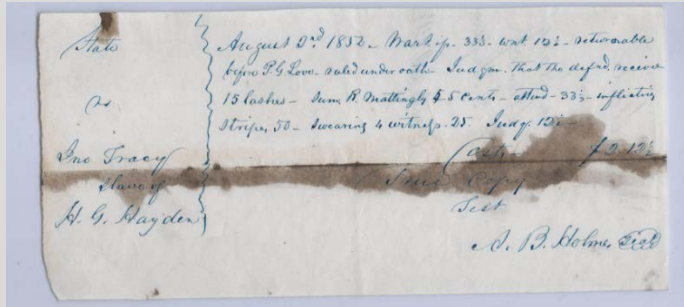 State
vs
Jno Tracy
Slave of
H. G. Hayden
August 2nd 1852 - Wart. ip. 33⅓ - writ 12½ - returnable
before P. G. Love - ruled under oath Judgm. that the defnd. receive
15 lashes - Sum, R. Mattingly & 5 cents - attend - 33⅓ - inflicting
Stripes 50 - Swearing 4 witness - 25. Judg. 12½ -
Costs $2.12½
True Copy
Test
A. B. Holmes